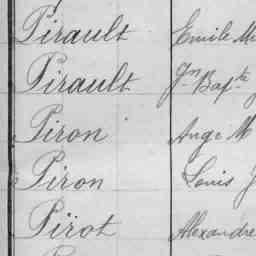 Pirault Emile M
Pirault Jn Bapte
Piron Ange M
Piron Louis J
Pirot Alexandre